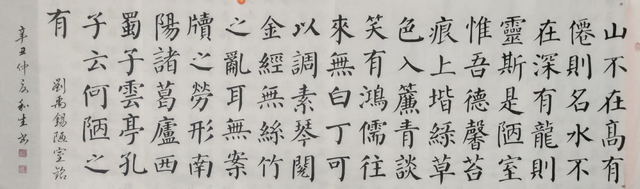 山不在高有
僊則名水不
在深有龍則
靈斯是陋室
惟吾德馨苔
痕上堦綠草
色入簾青談
笑有鴻儒往
來無白丁可
以調素琴閱
金經無絲竹
之亂耳無案
牘之勞形南
陽諸葛廬西
蜀子雲亭孔
子云何陋之
有
劉禹錫陋室銘
辛丑仲夏和